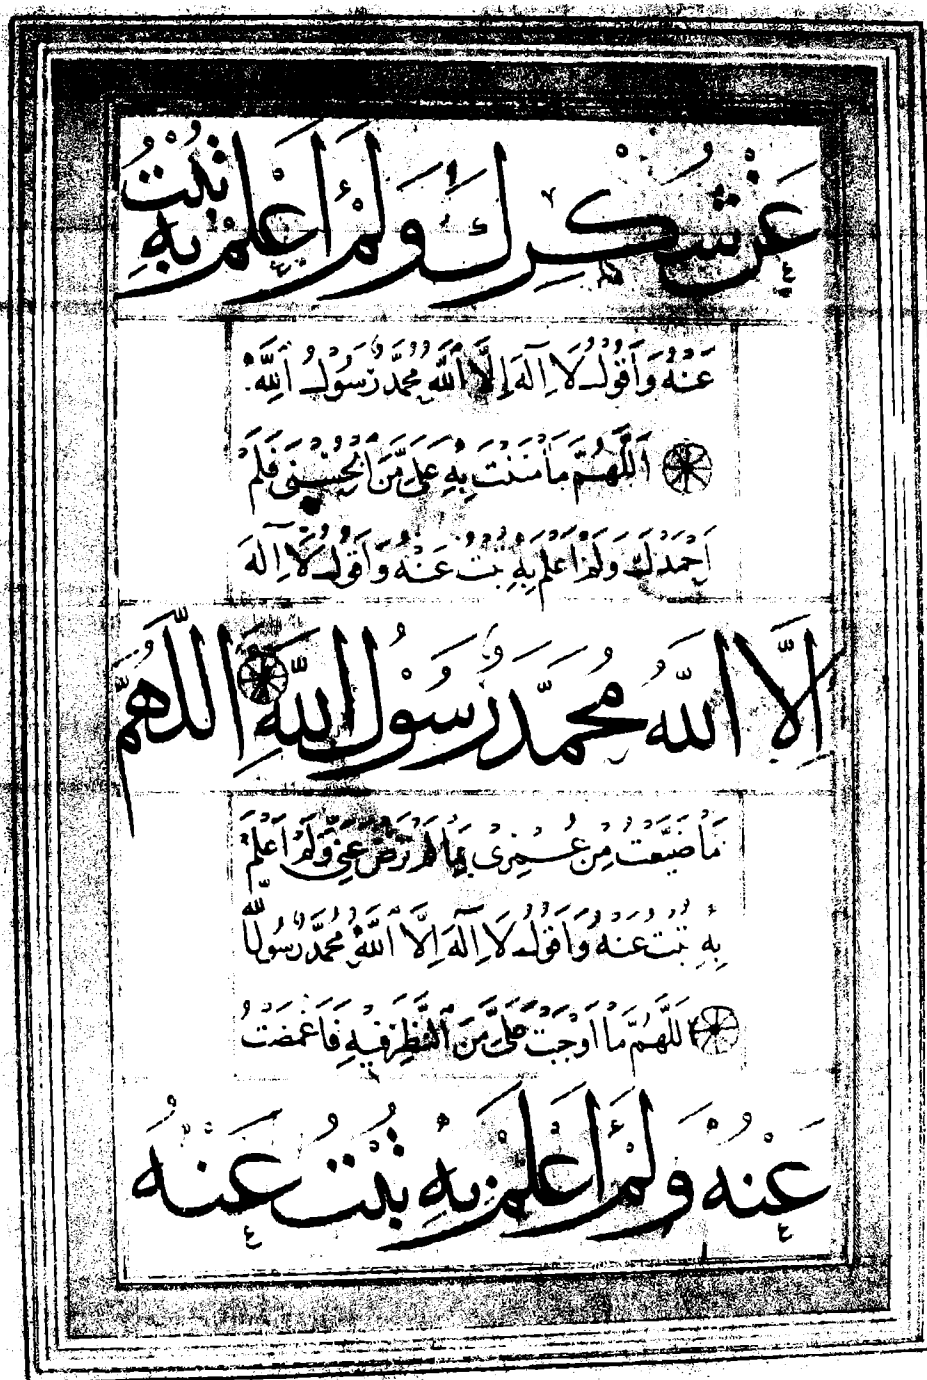 عَنْ شُكْرِكَ وَلَمْ اَعْلَمْ بِهِ تُبْتُ
عَنْهُ وَاَقُولُ لَا اِلٰهَ اِلَّا اللّٰهُ مُحَمَّدٌ رَسُولُ اللّٰهِ
اَللّٰهُمَّ مَا مَنَنْتَ بِهِ عَلَىَّ مِنَ الْحُسْنٰى فَلَمْ
اَحْمَدْكَ وَلَمْ اَعْلَمْ بِهِ تُبْتُ عَنْهُ وَاَقُولُ لَا اِلٰهَ
اِلَّا اللّٰهُ مُحَمَّدٌ رَسُوْلُ اللّٰهِ اَللّٰهُمَّ
مَا ضَيَّعْتُ مِنْ عُمْرِى بِمَا لَمْ تَرْضَ عَنِّى وَلَمْ اَعْلَمْ
بِهِ تُبْتُ عَنْهُ وَاَقُولُ لَا اِلٰهَ اِلَّا اللّٰهُ مُحَمَّدٌ رَسُولُ اللّٰهِ
اَللّٰهُمَّ مَا اَوْجَبْتَ عَلَىَّ مِنَ النَّظَرِ فِيهِ فَاَغْمَضْتُ
عَنْهُ وَلَمْ اَعْلَمْ بِهِ تُبْتُ عَنْهُ